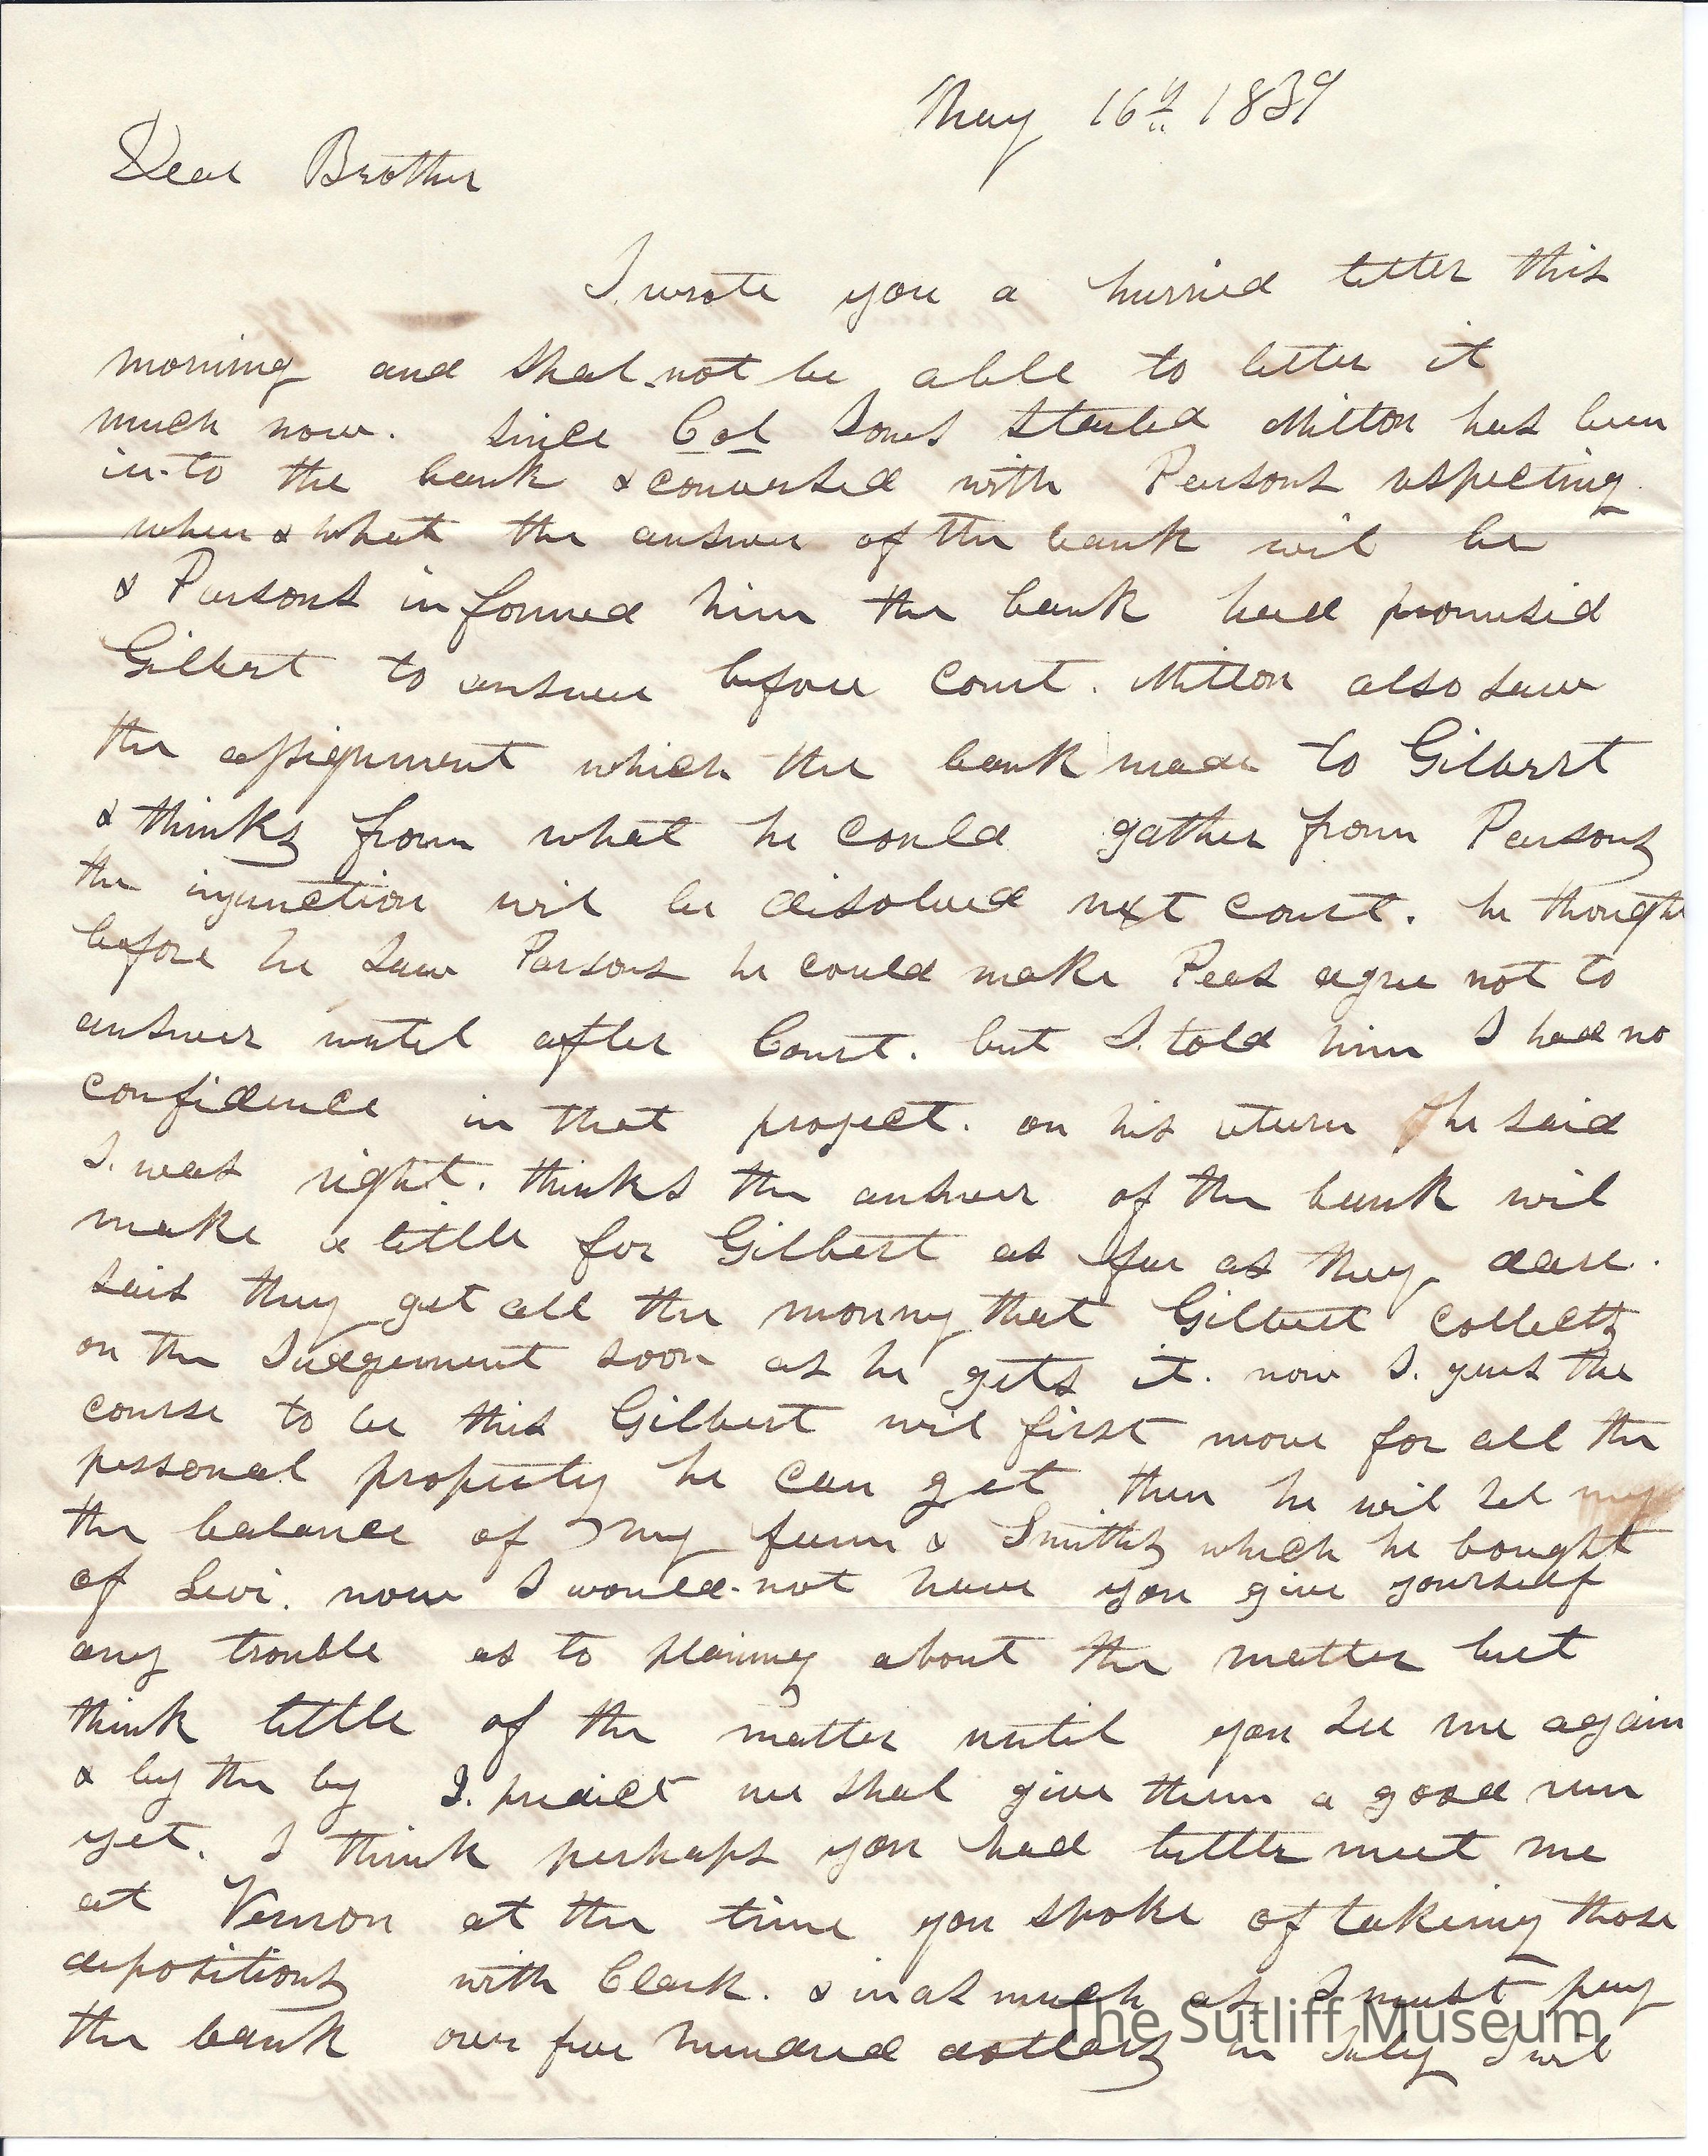 May 16th 1839
Dear Brother
I wrote you a hurried letter this
morning and shal not be able to better it
much now. since Col Jones started Milton has been
in-to the bank & conversed with Parsons respecting
when & what the answer of the bank wil be
& Parsons informed him the bank had promised
Gilbert to answer before court. Milton also saw
the assignment which the bank made to Gilbert
& thinks from what he could gather from Parsons
the injunction wil be disolved next court. he thought
before he saw Parsons he could make Peas agree not to
answer until after Court. but I told him I had no
confidence in that project. on his return he said
I was right. thinks the answer of the bank wil
make a little for Gilbert as far as they dare.
sais they get all the monny that Gilbert collects
on the Judgement soon as he gets it. now I. gues the
course to be this Gilbert wil first move for all the
personal property he can get then he wil sel
the balance of my farm & Smiths which he bought
of Levi. now I would-not have you give yourself
any trouble as to planning about the matter but
think little of the matter until you see me again
& by the by I. predict we shal give them a good run
yet. I think perhaps you had better meet me
at Vernon at the time you spoke of takeing those
depositions with Clark. & in as much as I must pay
the bank over five hundred dollars in July I wil
The Sutliff Museum